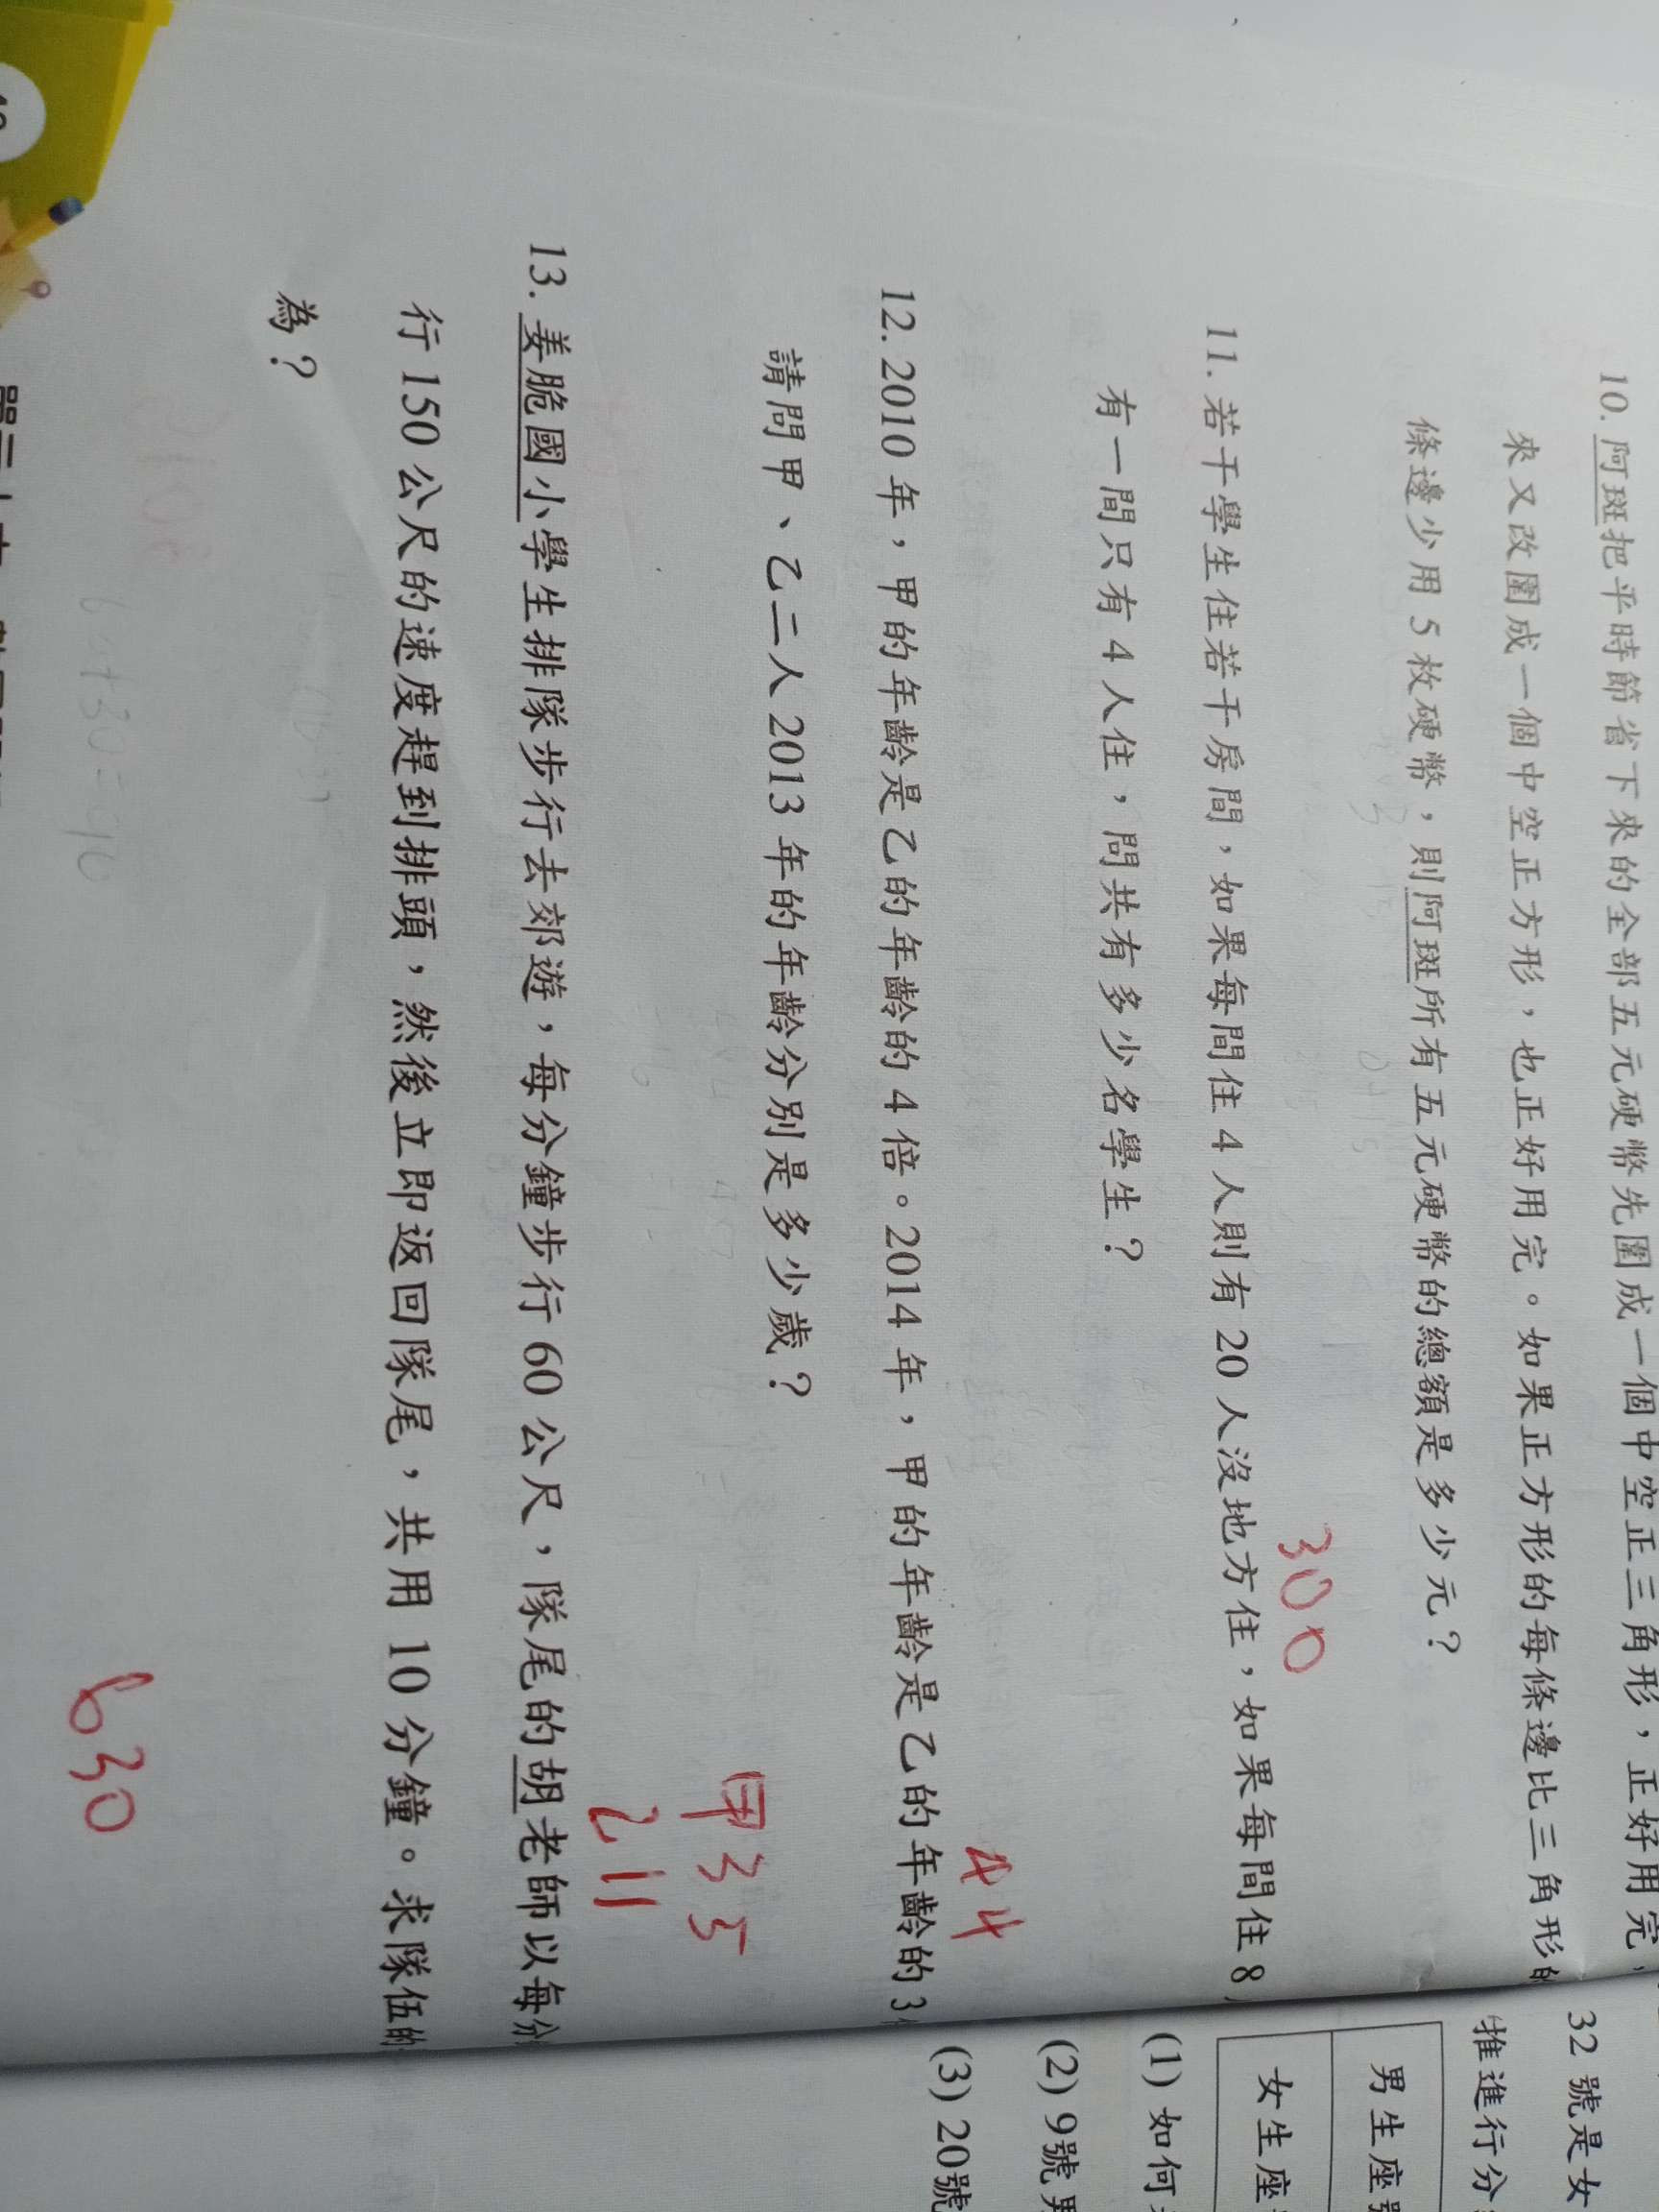 10. 阿斑把平時節省下來的全部五元硬幣先圍成一個中空正三角形，正好用完，
來又改圍成一個中空正方形，也正好用完。如果正方形的每條邊比三角形的
條邊少用 5 枚硬幣，則阿斑所有五元硬幣的總額是多少元？
300
11. 若干學生住若干房間，如果每間住 4 人則有 20 人沒地方住，如果每間住 8
有一間只有 4 人住，問共有多少名學生？
44
12. 2010 年，甲的年齡是乙的年齡的 4 倍。2014 年，甲的年齡是乙的年齡的 3
請問甲、乙二人 2013 年的年齡分別是多少歲？
甲35
乙11
13. 姜脆國小學生排隊步行去郊遊，每分鐘步行 60 公尺，隊尾的胡老師以每分
行 150 公尺的速度趕到排頭，然後立即返回隊尾，共用 10 分鐘。求隊伍的
為？
630
32 號是女
推進行分
男生座號
女生座
(1) 如何
(2) 9號男
(3) 20號